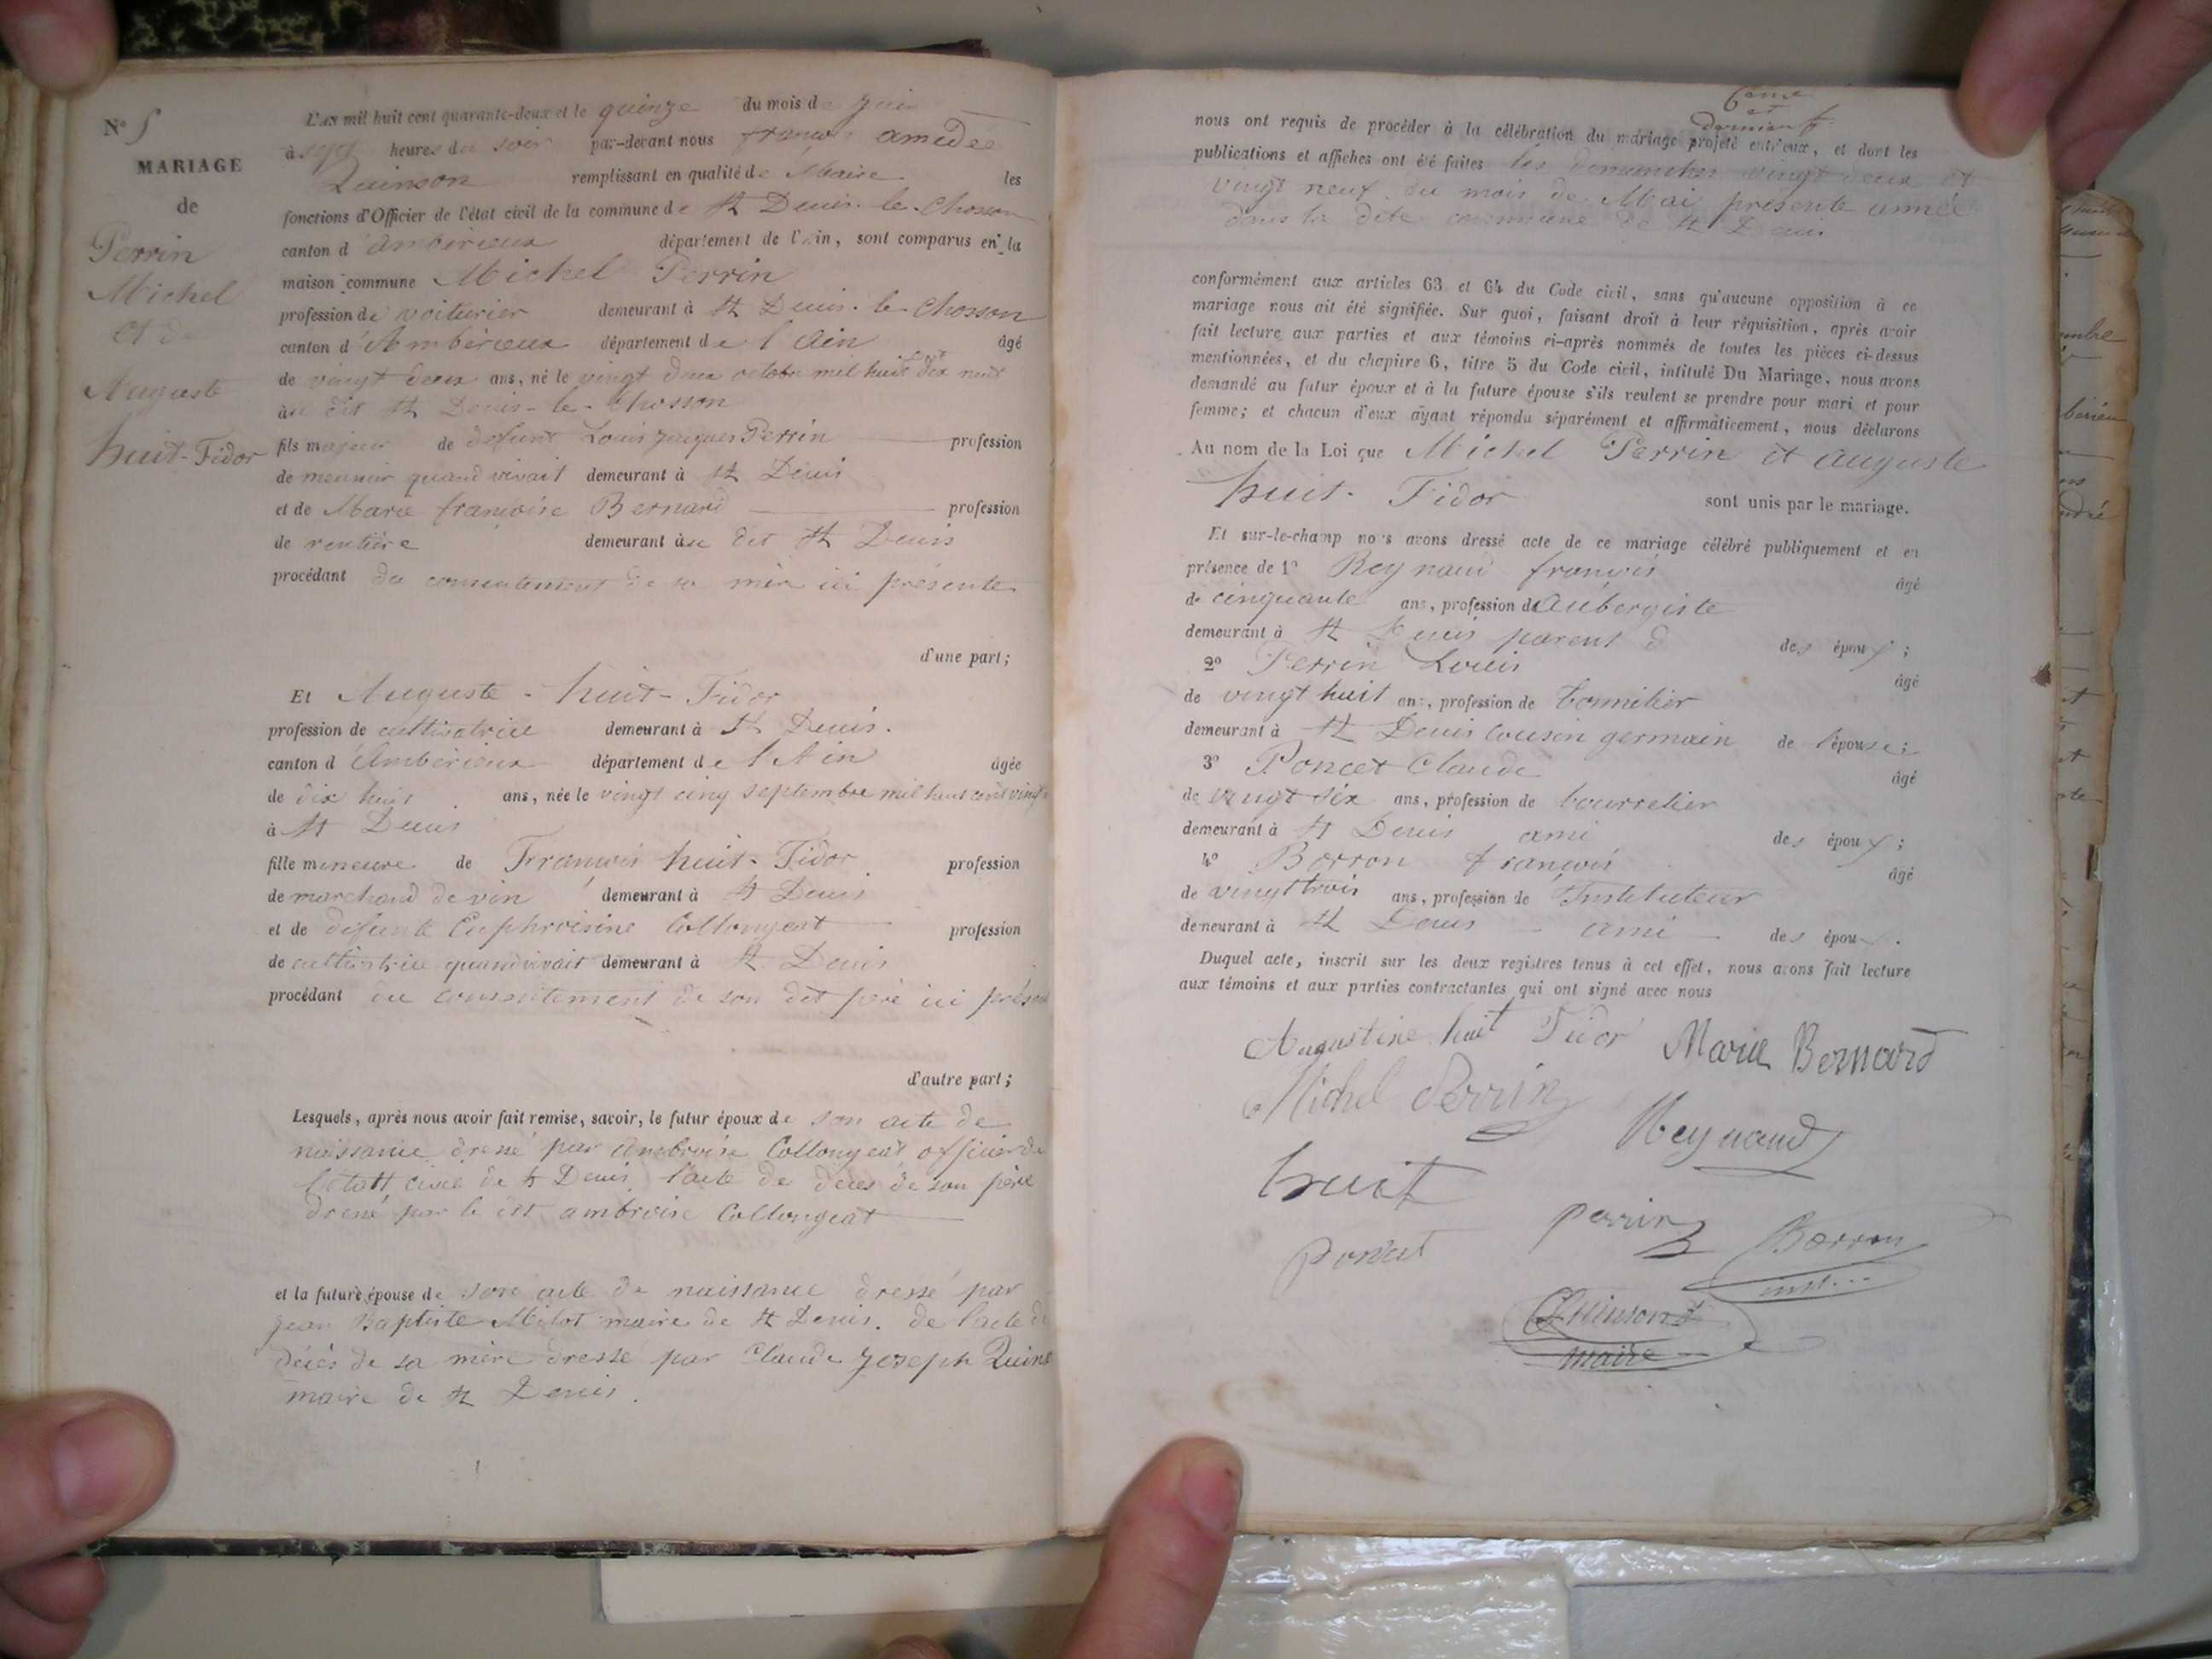 N° 5
MARIAGE
de
Perrin
Michel
et de
Auguste
huit-Fidor
L'AN mil huit cent quarante-deux et le quinze du mois de Juin
à sept heures du soir par-devant nous françois amedée
Quinson remplissant en qualité de Maire les
fonctions d'Officier de l'état civil de la commune de St Denis-le-Chosson
canton d'Ambérieux département de l'Ain, sont comparus en la
maison commune Michel Perrin
profession de voiturier demeurant à St Denis-le-Chosson
canton d'Ambérieux département de l'Ain âgé
de vingt deux ans, né le vingt deux octobre mil huit cent dix neuf
au dit St Denis-le-Chosson
fils majeur de defunt Louis Jacques Perrin profession
de meunier quand vivait demeurant à St Denis
et de Marie françoise Bernard profession
de rentière demeurant au dit St Denis
procédant du consentement de sa mère ici présente
d'une part;
Et Auguste-huit-Fidor
profession de cultivatrice demeurant à St Denis.
canton d'Ambérieux département de l'Ain âgée
de dix huit ans, née le vingt cinq septembre mil huit cent vingt
à St Denis
fille mineure de François huit-Fidor profession
de marchand de vin demeurant à St Denis
et de défunte Euphroisine Collongeat profession
de cultivatrice quand vivait demeurant à St Denis
procédant du consentement de son dit père ici présent
d'autre part;
Lesquels, après nous avoir fait remise, savoir, le futur époux de son acte de
naissance dressé par Ambroise Collongeat officier de
l'état civil de St Denis, l'acte de décès de son père
dressé par le dit ambroise Collongeat
et la future épouse de son acte de naissance dressé par
Jean Baptiste Milot maire de St Denis. de l'acte de
décès de sa mère dressé par Claude Joseph Quins
maire de St Denis.
6eme
et
dernier f.
nous ont requis de procéder à la célébration du mariage projeté entr'eux, et dont les
publications et affiches ont été faites les dimanches vingt deux et
vingt neuf du mois de Mai présente année
dans la dite commune de St Denis
conformément aux articles 63 et 64 du Code civil, sans qu'aucune opposition à ce
mariage nous ait été signifiée. Sur quoi, faisant droit à leur réquisition, après avoir
fait lecture aux parties et aux témoins ci-après nommés de toutes les pièces ci-dessus
mentionnées, et du chapitre 6, titre 5 du Code civil, intitulé Du Mariage, nous avons
demandé au futur époux et à la future épouse s'ils veulent se prendre pour mari et pour
femme; et chacun d'eux ayant répondu séparément et affirmativement, nous déclarons
Au nom de la Loi que Michel Perrin et Auguste
huit-Fidor sont unis par le mariage.
Et sur-le-champ nous avons dressé acte de ce mariage célébré publiquement et en
présence de 1° Reynaud françois âgé
de cinquante ans, profession d'Aubergiste
demeurant à St Denis parent d des époux;
2° Perrin Louis âgé
de vingt huit ans, profession de tonnelier
demeurant à St Denis cousin germain de l'épouse;
3° Poncet Claude âgé
de vingt six ans, profession de bourrelier
demeurant à St Denis ami des époux;
4° Borron françois âgé
de vingt trois ans, profession de Instituteur
demeurant à St Denis ami des époux.
Duquel acte, inscrit sur les deux registres tenus à cet effet, nous avons fait lecture
aux témoins et aux parties contractantes qui ont signé avec nous
Augustine huit Fidor Marie Bernard
Michel Perrin
Reynaud
huit
perrin Borron
poncet inst...
Quinson
maire